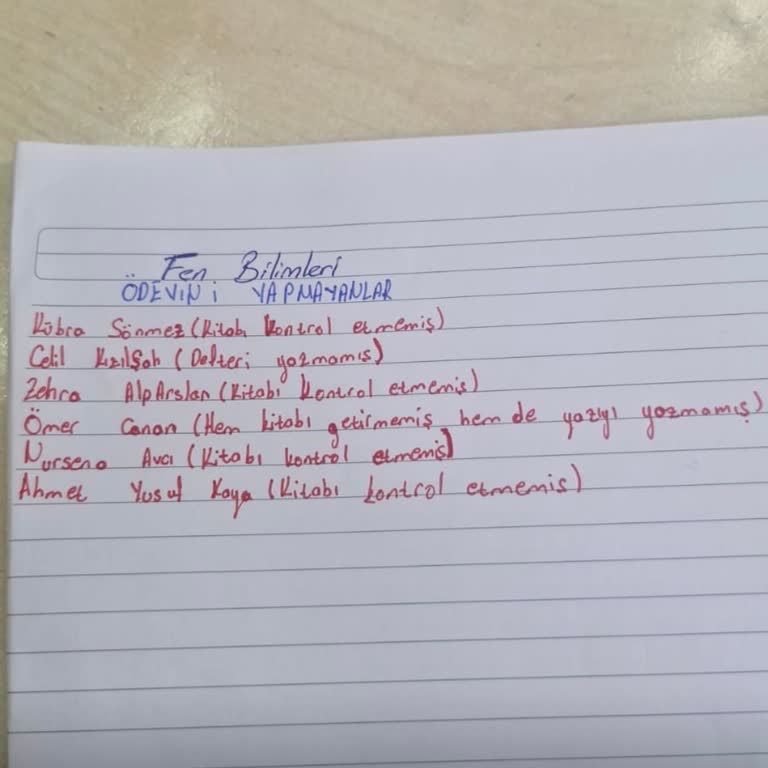 Fen Bilimleri
ÖDEVİNİ YAPMAYANLAR
Kübra Sönmez (Kitabı kontrol etmemiş)
Celil KızılŞah (Defteri yazmamış)
Zehra AlpArslan (Kitabı kontrol etmemiş)
Ömer Canan (Hem kitabı getirmemiş hem de yazıyı yazmamış)
Nursena Avcı (Kitabı kontrol etmemiş)
Ahmet Yusuf Kaya (Kitabı kontrol etmemiş)